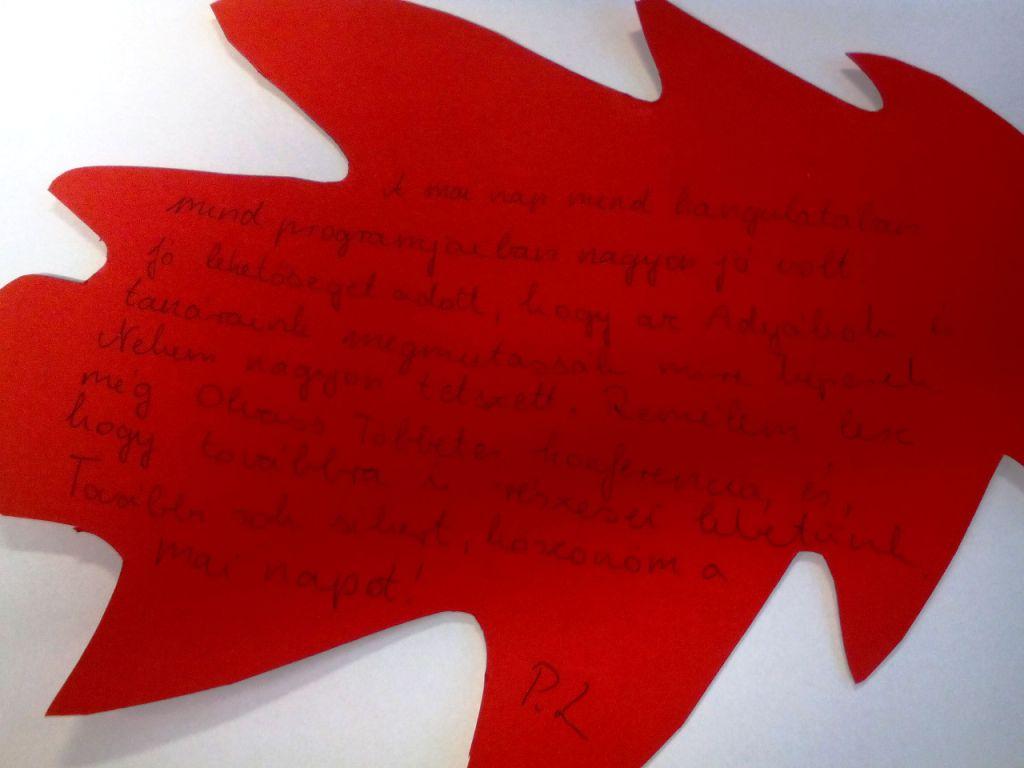 A mai nap mind hangulatában
mind programjaiban nagyon jó volt
jó lehetőséget adott, hogy az Adysok és
tanáraink megmutassák mire képesek
Nekem nagyon tetszett. Remélem lesz
még Olvass Többet konferencia, és,
hogy továbbra is részesei lehetünk
További sok sikert, köszönöm a
mai napot!
P.L